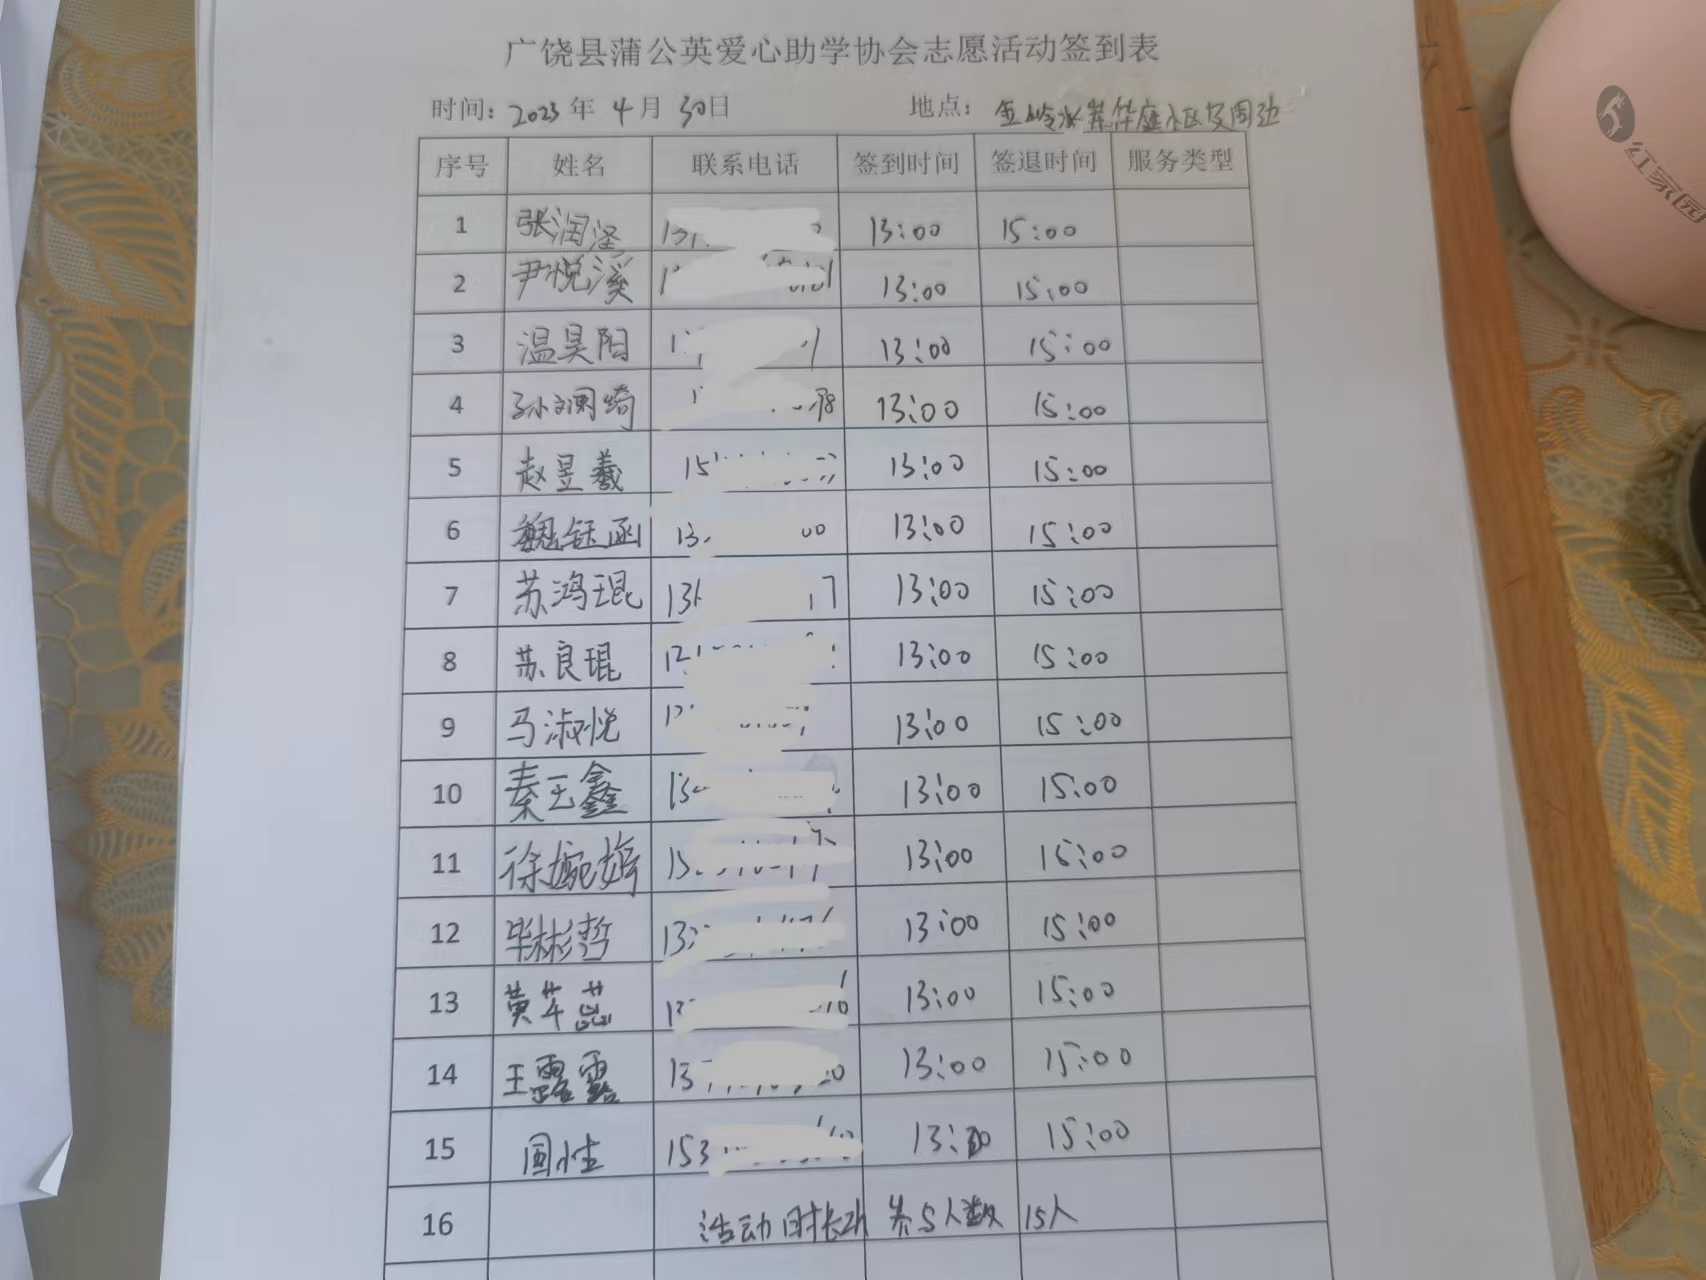 广饶县蒲公英爱心助学协会志愿活动签到表
时间: 2023 年 4 月 30日 地点: 金岭水岸华庭小区及周边
序号 姓名 联系电话 签到时间 签退时间 服务类型
1 张润泽 13:00 15:00
2 尹悦溪 13:00 15:00
3 温昊阳 13:00 15:00
4 孙文阑绮 13:00 15:00
5 赵昱羲 15 13:00 15:00
6 魏钰函 13 00 13:00 15:00
7 苏鸿琨 13 17 13:00 15:00
8 苏良琨 13:00 15:00
9 马淑悦 13:00 15:00
10 秦玉鑫 13 13:00 15:00
11 徐婉婷 15 13:00 15:00
12 毕彬哲 132 13:00 15:00
13 黄芊蕊 13:00 15:00
14 王露露 13 13:00 15:00
15 国性 153 13:00 15:00
16 活动时长2h 参与人数 15人
红家园